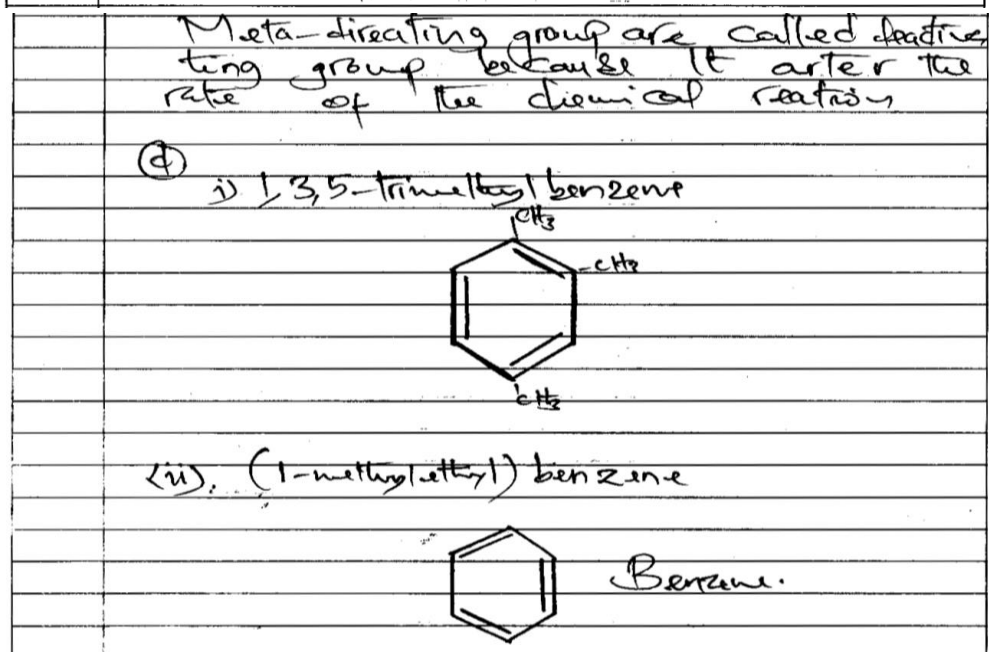 Meta-directing group are called deactiva
ting group because It arter the
rate of the chemical reation
(d)
i) 1,3,5-trimethyl benzene
CH3
-CH3
CH3
(ii). (1-methylethyl) benzene
Benzene.